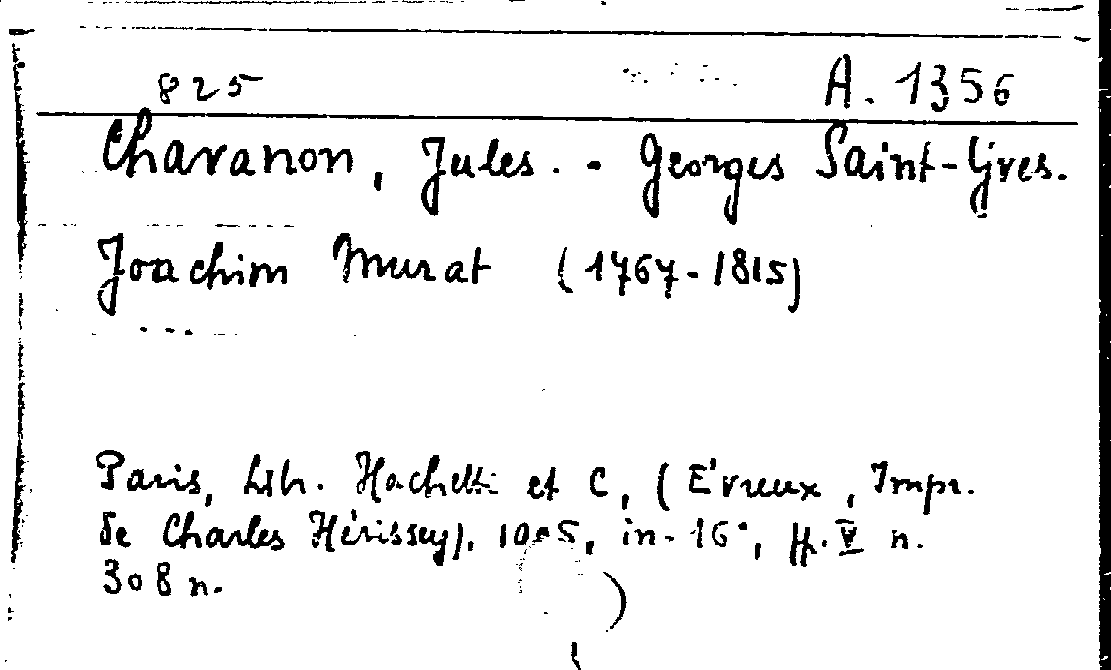 825 A. 1356
Chavanon, Jules. - Georges Saint-Yves.
Joachim Murat (1767-1815)
Paris, Libr. Hachette et C, (Évreux, Impr.
de Charles Hérissey), 1905, in-16°, pp. V n.
308 n.